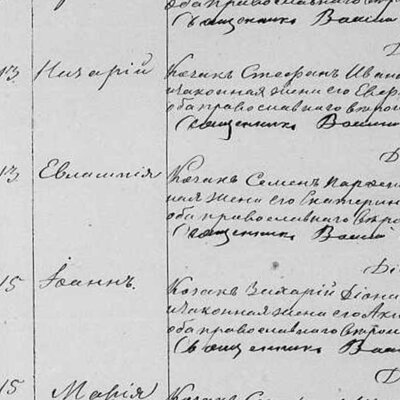 оба православнаго
Священникъ Васили
13 Назарій Козакъ Стефанъ Иван
и законная жена его Евф
оба православнаго вѣроис
Священникъ Васили
13 Евлампія Козакъ Семенъ
ная жена его Екатерин
оба православнаго вѣро
Священникъ Васи
15 Іоаннъ. Козакъ Захарій Діони
и законная жена его
оба православнаго вѣроис
Священникъ Васи
15 Марія Козакъ